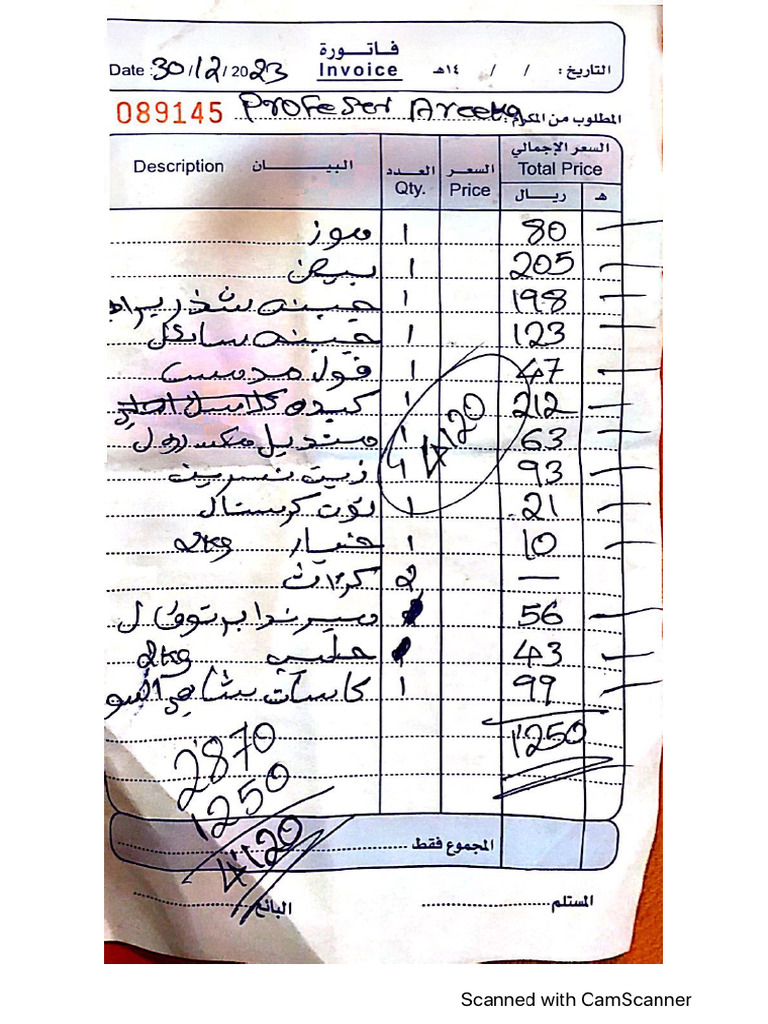 فاتورة
Date : 30/12/2023 Invoice ١٤هـ / / التاريخ :
089145 Profeser Areeka المطلوب من المكرم :
السعر الإجمالي
Description البيان العدد السعر Total Price
Qty. Price ريال هـ
موز 1 80
بيض 1 205
جبينه 1 198
جبينه سائل 1 123
فول مدمس 1 47
كبده 1 212
منديل مكس رول 1 63
زيت نسرين 1 93
توت كرستال 1 21
خيار 2kg 1 10
كراث 2 —
ل 56
حليب 2kg 43
كاسات شاهي 1 99
4120
1250
2870
1250
4120
المجموع فقط
المستلم البائع
Scanned with CamScanner